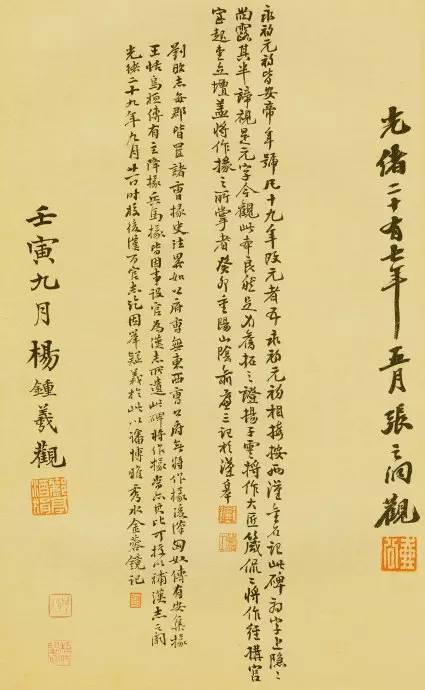 光緒二十有七年五月張之洞觀
永初元初皆安帝年號凡十九年改元者五永初元初相接按兩漢金石記此碑初字上隱〻
尚露其半諦視是元字今觀此本良然足為舊拓之證揚子雲將作大匠箴侃〻將作經構宮
室起堂立壇蓋將作掾之所掌者癸卯重陽山陰俞廉三記於漢皋
劉昭志每郡皆置諸曹掾史注畧如公府曹無東西曹公府無將作掾後漢匈奴傳有安集掾
王恬烏桓傳有主降掾兵馬掾皆因事設官為漢志所遺此碑將作掾當亦其比可据以補漢志之闕
光緒二十九年九月廿一日時校後漢百官志訖因舉疑義於此以諗博雅秀水金蓉鏡記
壬寅九月楊鍾羲觀